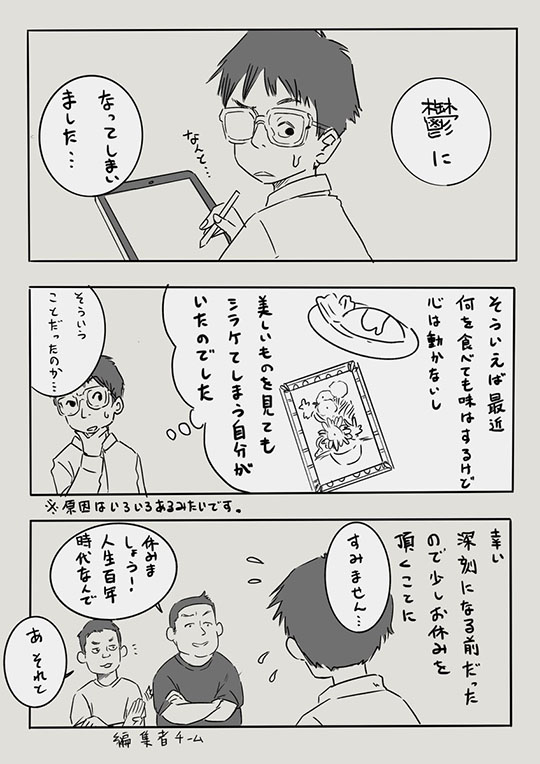 鬱に
なってしまい
ました…
なんと…
そういえば最近
何を食べても味はするけど
心は動かないし
美しいものを見ても
シラケてしまう自分が
いたのでした
そういう
ことだったのか…
※原因はいろいろあるみたいです。
幸い
深刻になる前だった
ので少しお休みを
頂くことに
すみません…
休みま
しょう!
人生百年
時代なんで
あ それと
編集者チーム